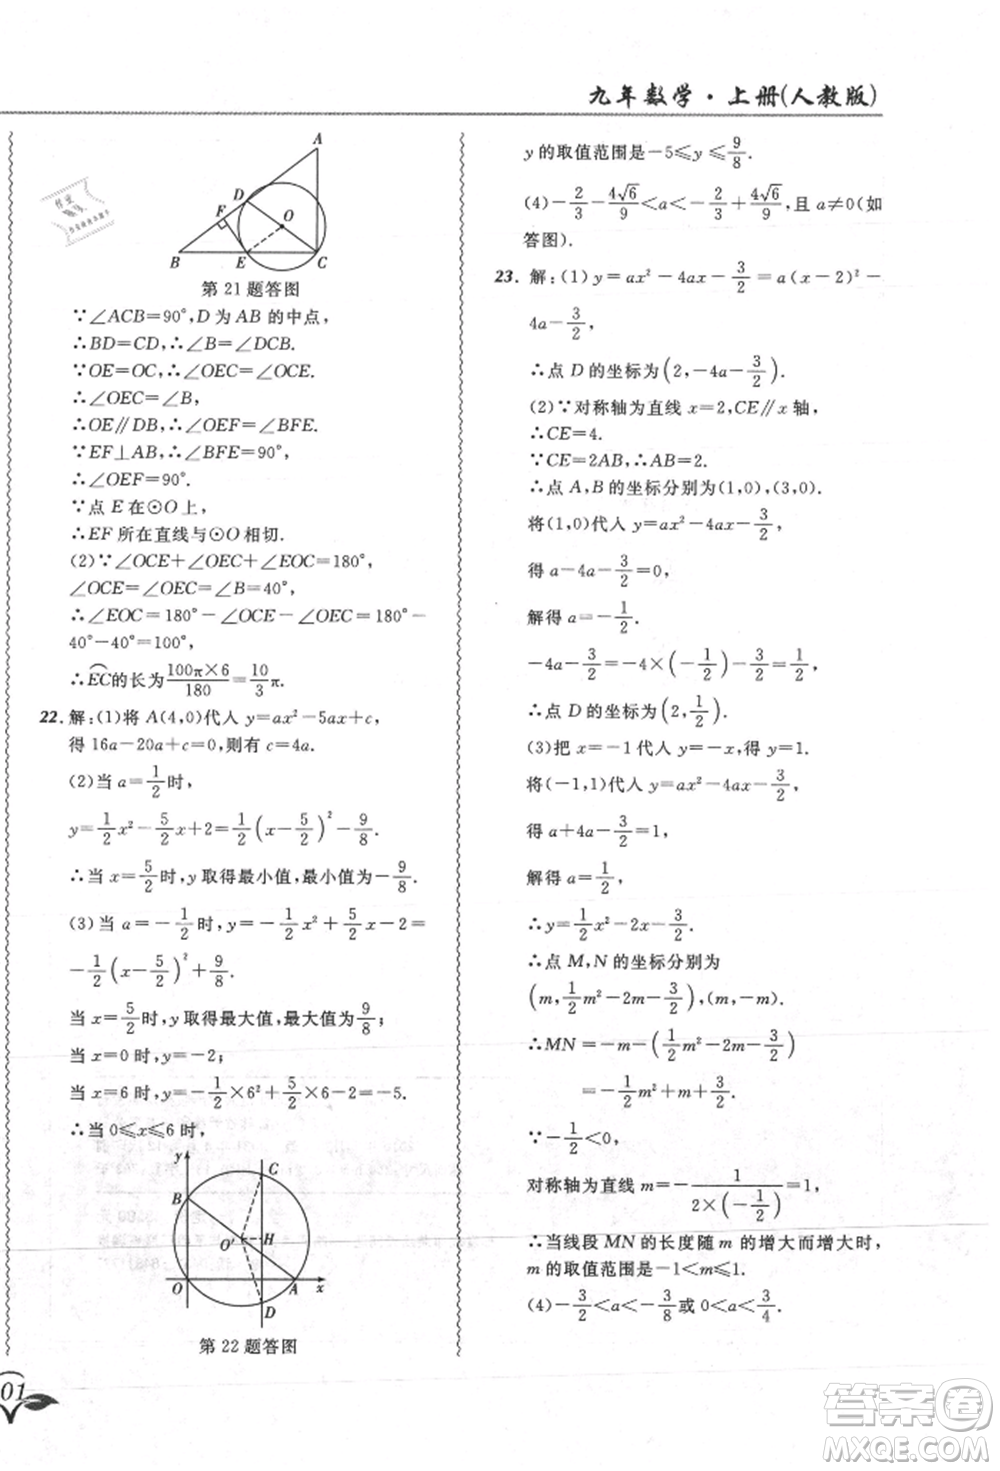 九年数学·上册(人教版)
A
D
F
O
B
E
C
第21题答图
∵∠ACB=90°,D为AB的中点,
∴BD=CD,∴∠B=∠DCB.
∵OE=OC,∴∠OEC=∠OCE.
∴∠OEC=∠B,
∴OE∥DB,∴∠OEF=∠BFE.
∵EF⊥AB,∴∠BFE=90°,
∴∠OEF=90°.
∵点E在⊙O上,
∴EF所在直线与⊙O相切.
(2)∵∠OCE+∠OEC+∠EOC=180°,
∠OCE=∠OEC=∠B=40°,
∴∠EOC=180°-∠OCE-∠OEC=180°-
40°-40°=100°.
∴⌒EC的长为100π×6/180=10/3π.
22. 解:(1)将A(4,0)代人y=ax²-5ax+c,
得16a-20a+c=0,则有c=4a.
(2)当a=1/2时,
y=1/2x²-5/2x+2=1/2(x-5/2)²-9/8.
∴当x=5/2时,y取得最小值,最小值-9/8.
(3)当a=-1/2时,y=-1/2x²+5/2x-2=
-1/2(x-5/2)²+9/8.
当x=5/2时,y取得最大值,最大值9/8;
当x=0时,y=-2;
当x=6时,y=-1/2×6²+5/2×6-2=-5.
∴当0≤x≤6时,
y
C
B
O′
H
O
A
x
D
第22题答图
01
y的取值范围是-5≤y≤9/8.
(4)-2/3-4√6/9<a<-2/3+4√6/9,且a≠0(如
答图).
23. 解:(1)y=ax²-4ax-3/2=a(x-2)²-
4a-3/2,
∴点D的坐标为(2,-4a-3/2).
(2)∵对称轴为直线x=2,CE∥x轴,
∴CE=4.
∵CE=2AB,∴AB=2.
∴点A,B的坐标分别为(1,0),(3,0).
将(1,0)代人y=ax²-4ax-3/2,
得a-4a-3/2=0,
解得a=-1/2,
-4a-3/2=-4×(-1/2)-3/2=1/2,
∴点D的坐标为(2,1/2).
(3)把x=-1代人y=-x,得y=1.
将(-1,1)代人y=ax²-4ax-3/2,
得a+4a-3/2=1,
解得a=1/2,
∴y=1/2x²-2x-3/2.
∴点M,N的坐标分别为
(m,1/2m²-2m-3/2),(m,-m).
∴MN=-m-(1/2m²-2m-3/2)
=-1/2m²+m+3/2.
∵-1/2<0,
对称轴为直线m=-1/2×(-1/2)=1,
∴当线段MN的长度随m的增大而增大时,
m的取值范围是-1<m≤1.
(4)-3/2<a<-3/8或0<a<3/4.
答案圈
MXQE.COM